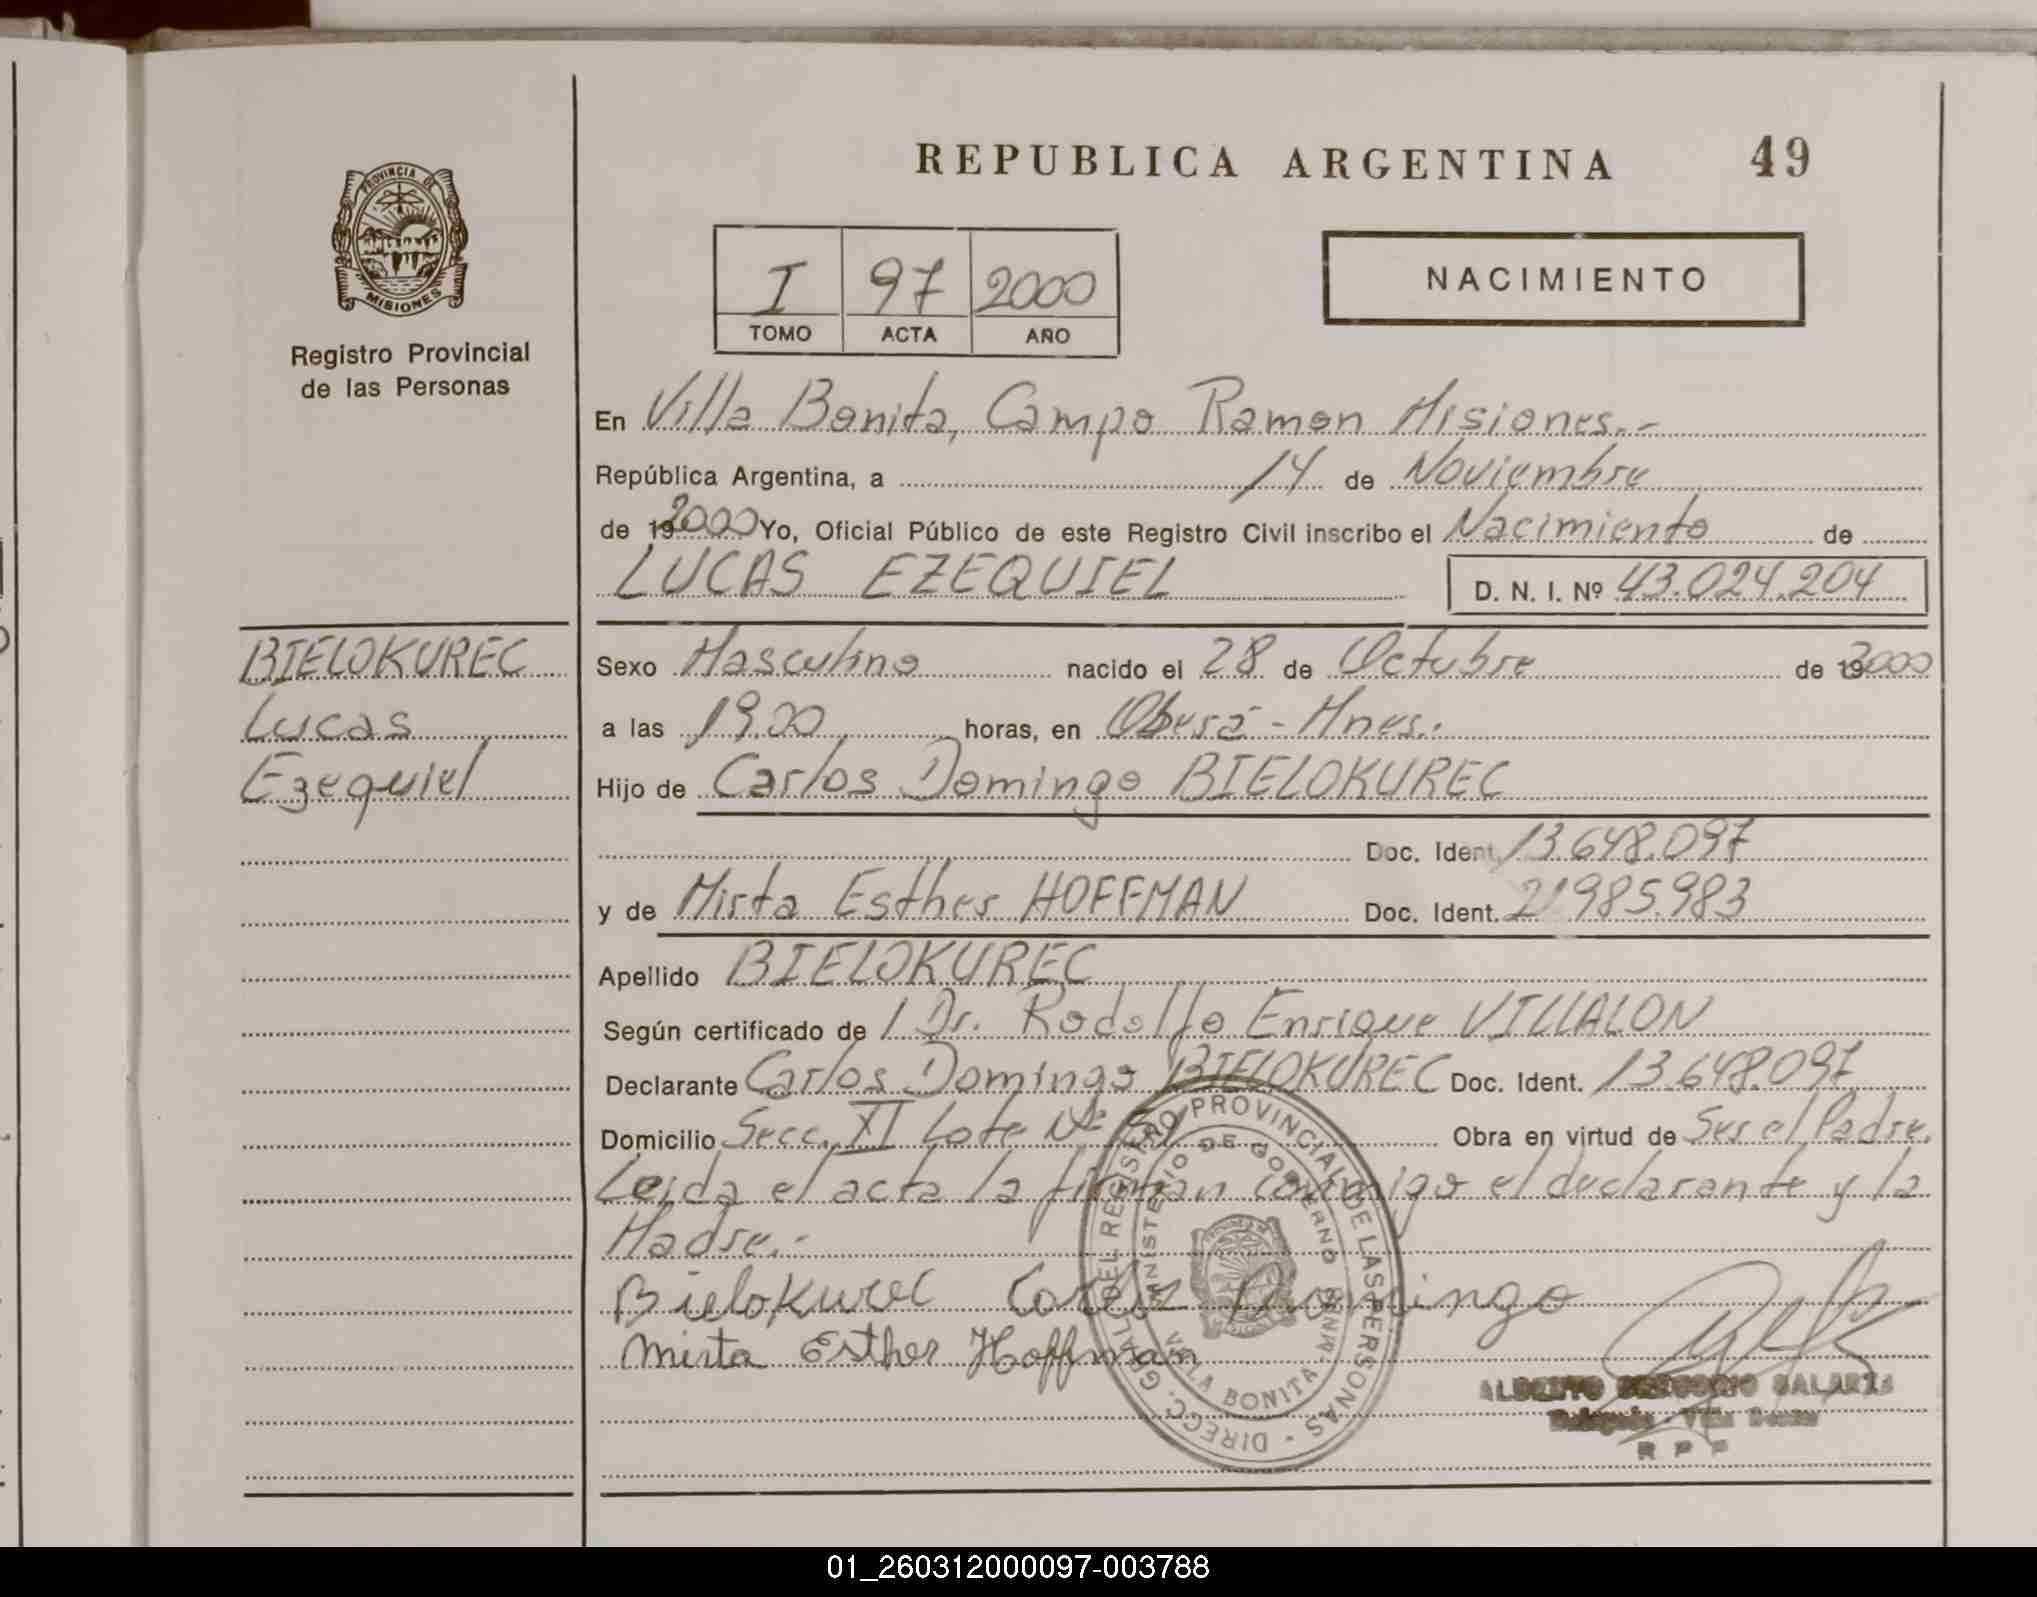 REPUBLICA ARGENTINA 49
PROVINCIA DE
MISIONES
Registro Provincial
de las Personas
I 97 2000
TOMO ACTA AÑO
NACIMIENTO
En Villa Bonita, Campo Ramon Misiones.-
República Argentina, a 14 de Noviembre
de 192000 Yo, Oficial Público de este Registro Civil inscribo el Nacimiento de
LUCAS EZEQUIEL D. N. I. Nº 43.024.204
BIELOKUREC
Lucas
Ezequiel
Sexo Masculino nacido el 28 de Octubre de 192000
a las 19.00 horas, en Oberá - Mnes.
Hijo de Carlos Domingo BIELOKUREC
Doc. Ident. 13.648.097
y de Mirta Esther HOFFMAN Doc. Ident. 21.985.983
Apellido BIELOKUREC
Según certificado de Dr. Rodolfo Enrique VILLALON
Declarante Carlos Domingo BIELOKUREC Doc. Ident. 13.648.097
Domicilio Secc. XI Lote Nº Obra en virtud de Ser el Padre.
Leida el acta la firman conmigo el declarante y la
Madre.-
Bielokurec Carlos Domingo
Mirta Esther Hoffman
DIRECC. GRAL. DEL REGISTRO PROVINCIAL DE LAS PERSONAS
MINISTERIO DE GOBIERNO
VILLA BONITA
ALBERTO GREGORIO
Delegado - Villa Bonita
R P P
01_260312000097-003788